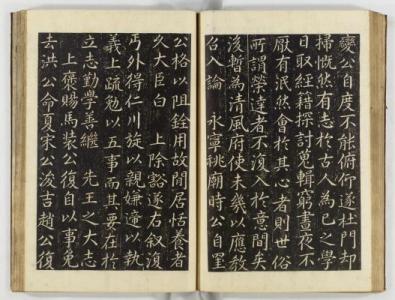 变公自度不能俯仰遂杜門却
掃慨然有志於古人為己之學
日取經籍探討蒐輯窮晝夜不
厭有泯然會於其心者則世俗
所謂榮達者不復入於意間矣
後暫為清風府使未幾以應教
召入論 永寧祧廟時公自罣
公格以阻銓用故間居恬養者
久大臣白 上除豁遂右叙復
丐外得仁川旋以親嫌遞以執
義上疏勉以五事而其要在於
立志勤學善繼 先王之大志
上褒賜馬裝公復自以事免
去洪公命夏宋公浚吉趙公復